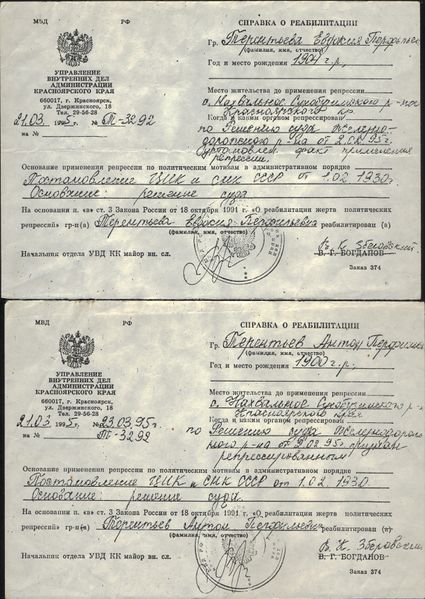 МВД РФ
УПРАВЛЕНИЕ
ВНУТРЕННИХ ДЕЛ
АДМИНИСТРАЦИИ
КРАСНОЯРСКОГО КРАЯ
660017, г. Красноярск,
ул. Дзержинского, 18
Тел. 29-56-28
21.03. 1995 г. № Т-3292
на №
СПРАВКА О РЕАБИЛИТАЦИИ
Гр. Терентьева Евдокия
(фамилия, имя, отчество)
Год и место рождения 1904 г.р.
Место жительства до применения репрессии
с. Нахвальное Сухобузимского р-на
Красноярского
Когда и каким органом репрессирован
по Решению суда Железно-
дорожного р-на от
факт применения
репрессии.
Основание применения репрессии по политическим мотивам в административном порядке
Постановление ЦИК и СНК СССР от 1.02 1930г.
Основание: решение суда
На основании п. «в» ст. 3 Закона России от 18 октября 1991 г. «О реабилитации жертв политических
репрессий» гр-н(а) Терентьева Евдокия Перфильевна реабилитирован (а)
(фамилия, имя, отчество)
Начальник отдела УВД КК майор вн. сл. В. Г. БОГДАНОВ
Заказ 374
МВД РФ
УПРАВЛЕНИЕ
ВНУТРЕННИХ ДЕЛ
АДМИНИСТРАЦИИ
КРАСНОЯРСКОГО КРАЯ
660017, г. Красноярск,
ул. Дзержинского, 18
Тел. 29-56-28
21.03 1995 г. 23.03.95г.
на № Т-3292
СПРАВКА О РЕАБИЛИТАЦИИ
Гр. Терентьев Антон
(фамилия, имя, отчество)
Год и место рождения 1900 г.р.
Место жительства до применения репрессии
с. Нахвальное Сухобузимского р-
Красноярского края
Когда и каким органом репрессирован
по Решению суда Железнодорож
ного р-на от 2.02.95г. признан
репрессированным
Основание применения репрессии по политическим мотивам в административном порядке
Постановление ЦИК и СНК СССР от 1.02 1930.
Основание: решение суда.
На основании п. «в» ст. 3 Закона России от 18 октября 1991 г. «О реабилитации жертв политических
репрессий» гр-н(а) Терентьев Антон Перфильевич реабилитирован (а)
(фамилия, имя, отчество)
Начальник отдела УВД КК майор вн. сл. В. Г. БОГДАНОВ
Заказ 374